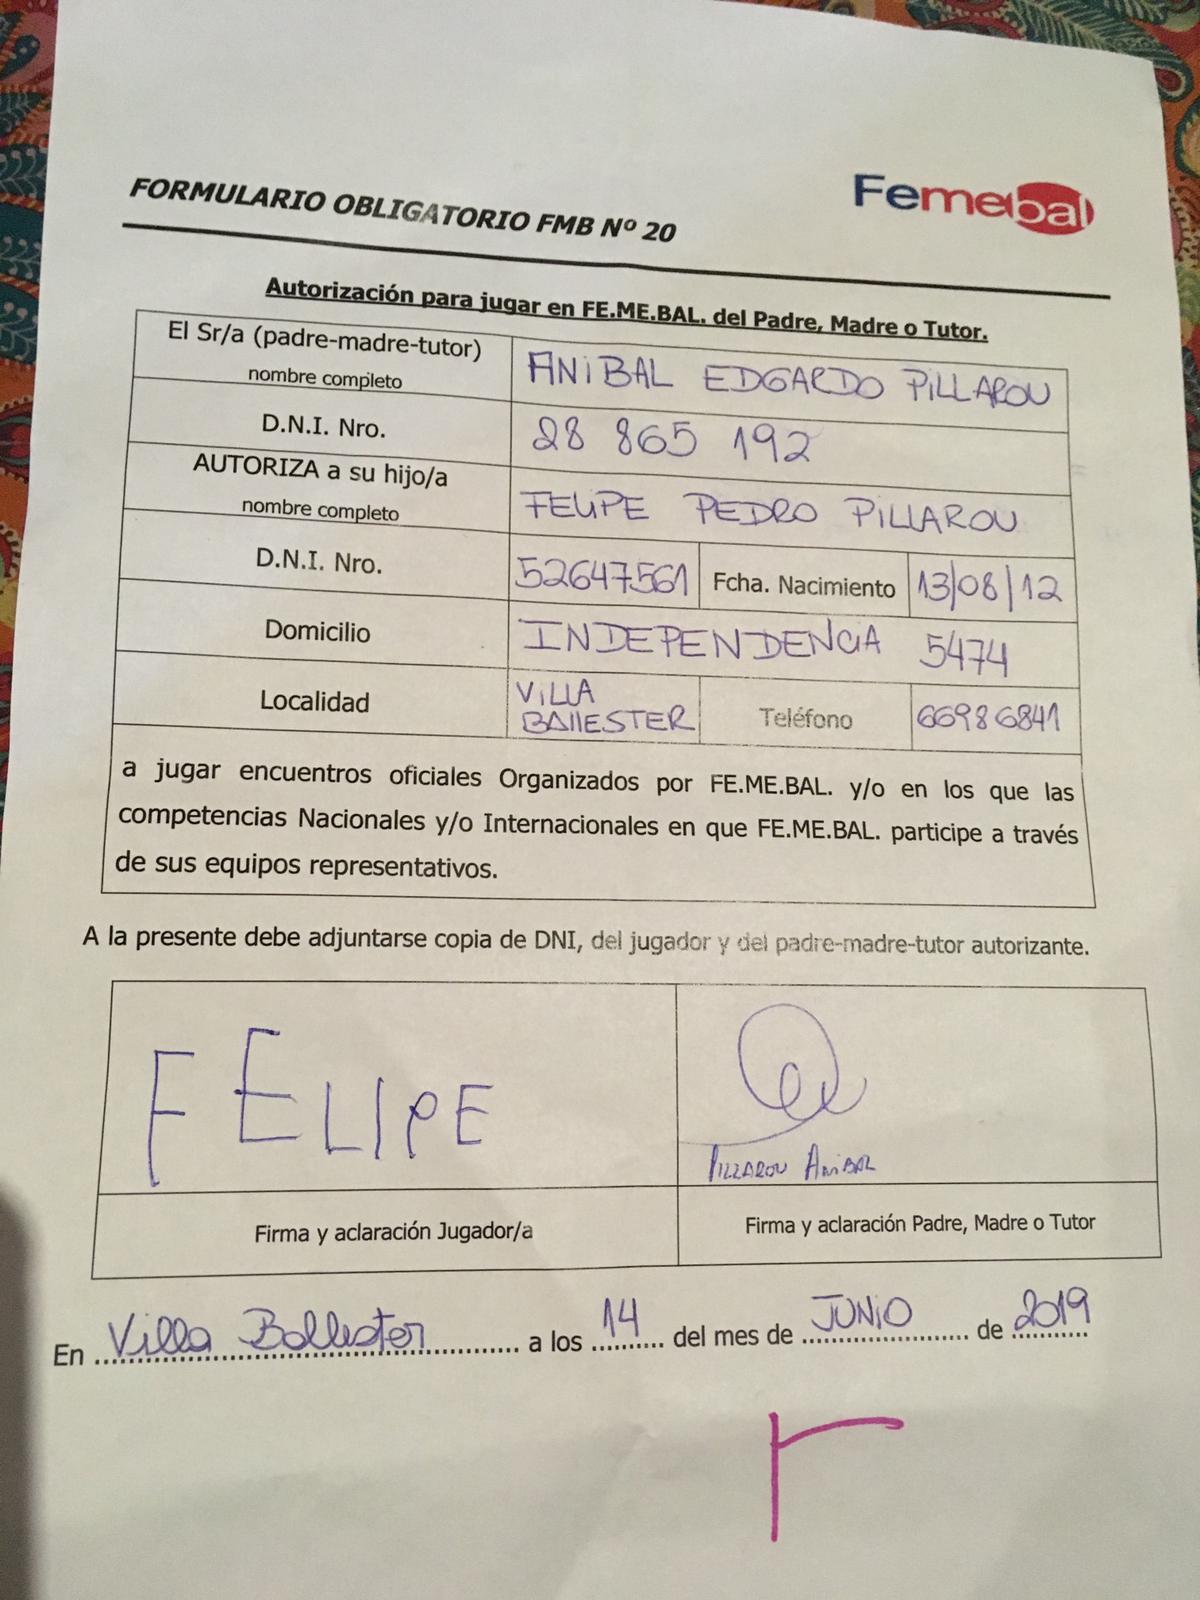 Femebal
FORMULARIO OBLIGATORIO FMB Nº 20
Autorización para jugar en FE.ME.BAL. del Padre, Madre o Tutor.
El Sr/a (padre-madre-tutor)
nombre completo
ANIBAL EDGARDO PILLAROU
D.N.I. Nro.
28 865 192
AUTORIZA a su hijo/a
nombre completo
FELIPE PEDRO PILLAROU
D.N.I. Nro.
52647561
Fcha. Nacimiento
13/08/12
Domicilio
INDEPENDENCIA 5474
Localidad
VILLA
BALLESTER
Teléfono
66986841
a jugar encuentros oficiales Organizados por FE.ME.BAL. y/o en los que las
competencias Nacionales y/o Internacionales en que FE.ME.BAL. participe a través
de sus equipos representativos.
A la presente debe adjuntarse copia de DNI, del jugador y del padre-madre-tutor autorizante.
FELIPE
PILLAROU ANIBAL
Firma y aclaración Jugador/a
Firma y aclaración Padre, Madre o Tutor
En Villa Ballester a los 14 del mes de JUNIO de 2019